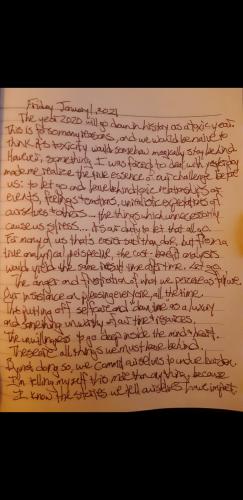 Friday January 1, 2021
The year 2020 will go down in history as a toxic year.
This is for so many reasons, and we would be naive to
think its toxicity would somehow magically stay behind.
However, something I was faced to deal with yesterday
made me realize the true essence of our challenge before
us: to let go and leave behind toxic relationships or
events, feelings & emotions, unrealistic expectations of
ourselves & others... the things which unnecessarily
cause us stress... it is our duty to let that all go.
For many of us that's easier said than done, but from a
true analytical perspective, the cost-benefit analysis
would yield the same result time after time. Let go.
The anger and frustration of what we perceive as failure.
Our insistence on pleasing everyone, all the time.
The putting off self care and down time as a luxury
and something unworthy of our time & resources.
The unwillingness to go deep inside the mind & heart.
These are all things we must leave behind.
By not doing so, we commit ourselves to undue burden.
I'm telling myself this more than anything, because
I know the stories we tell ourselves have impact.